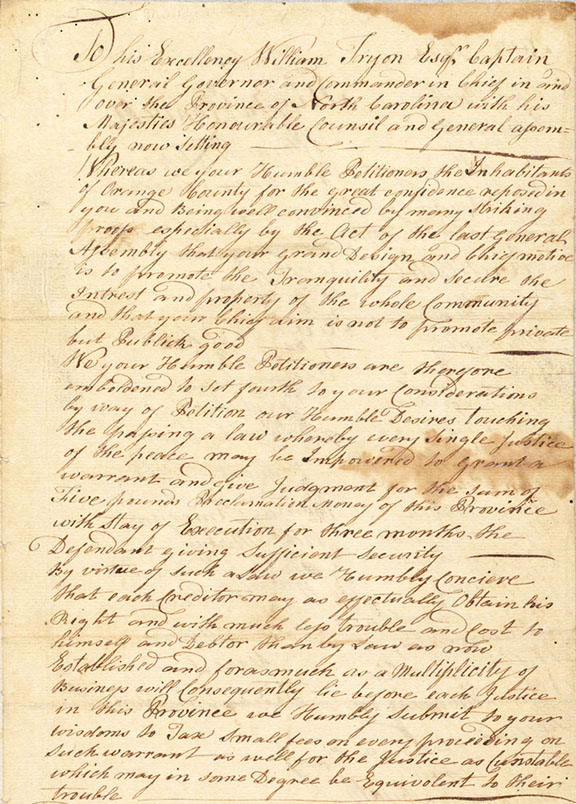 To his Excellency William Tryon Esqr. Captain
General Governor and Commander in Chief in and
over the Province of North Carolina with his
Majesties Honourable Counsil and General assem-
bly now Sitting
Whereas we your Humble Petitioners the Inhabitants
of Orange County for the great confidence reposed in
you and Being well convinced by many striking
proofs especially by the Act of the last General
Assembly that your Grand Design and Chief motive
is to promote the Tranquility and Secure the
Intrest and property of the whole Community
and that your Chief aim is not to promote private
but Publick good
We your Humble Petitioners are therfore
emboldened to set fourth to your Considerations
by way of Petition our Humble Desires touching
the passing a law whereby every Single Justice
of the peace may be Impowered to grant a
warrant and give Judgment for the sum of
Five pounds Proclamation Money of this Province
with Stay of Execution for three months the
Defendant giving Sufficient Security
By virtue of such a Law we Humbly Concieve
that each Creditor may as effectually Obtain his
Right and with much less trouble and Cost to
himself and Debtor than by Law as now
Established and forasmuch as a Multiplicity of
Business will Consequently lie before each Justice
in this Province we Humbly Submit to your
wisdoms to Tax Small fees on every proceeding on
such warrant as well for the Justice as Constable
which may in Some Degree be Equivolent to their
trouble